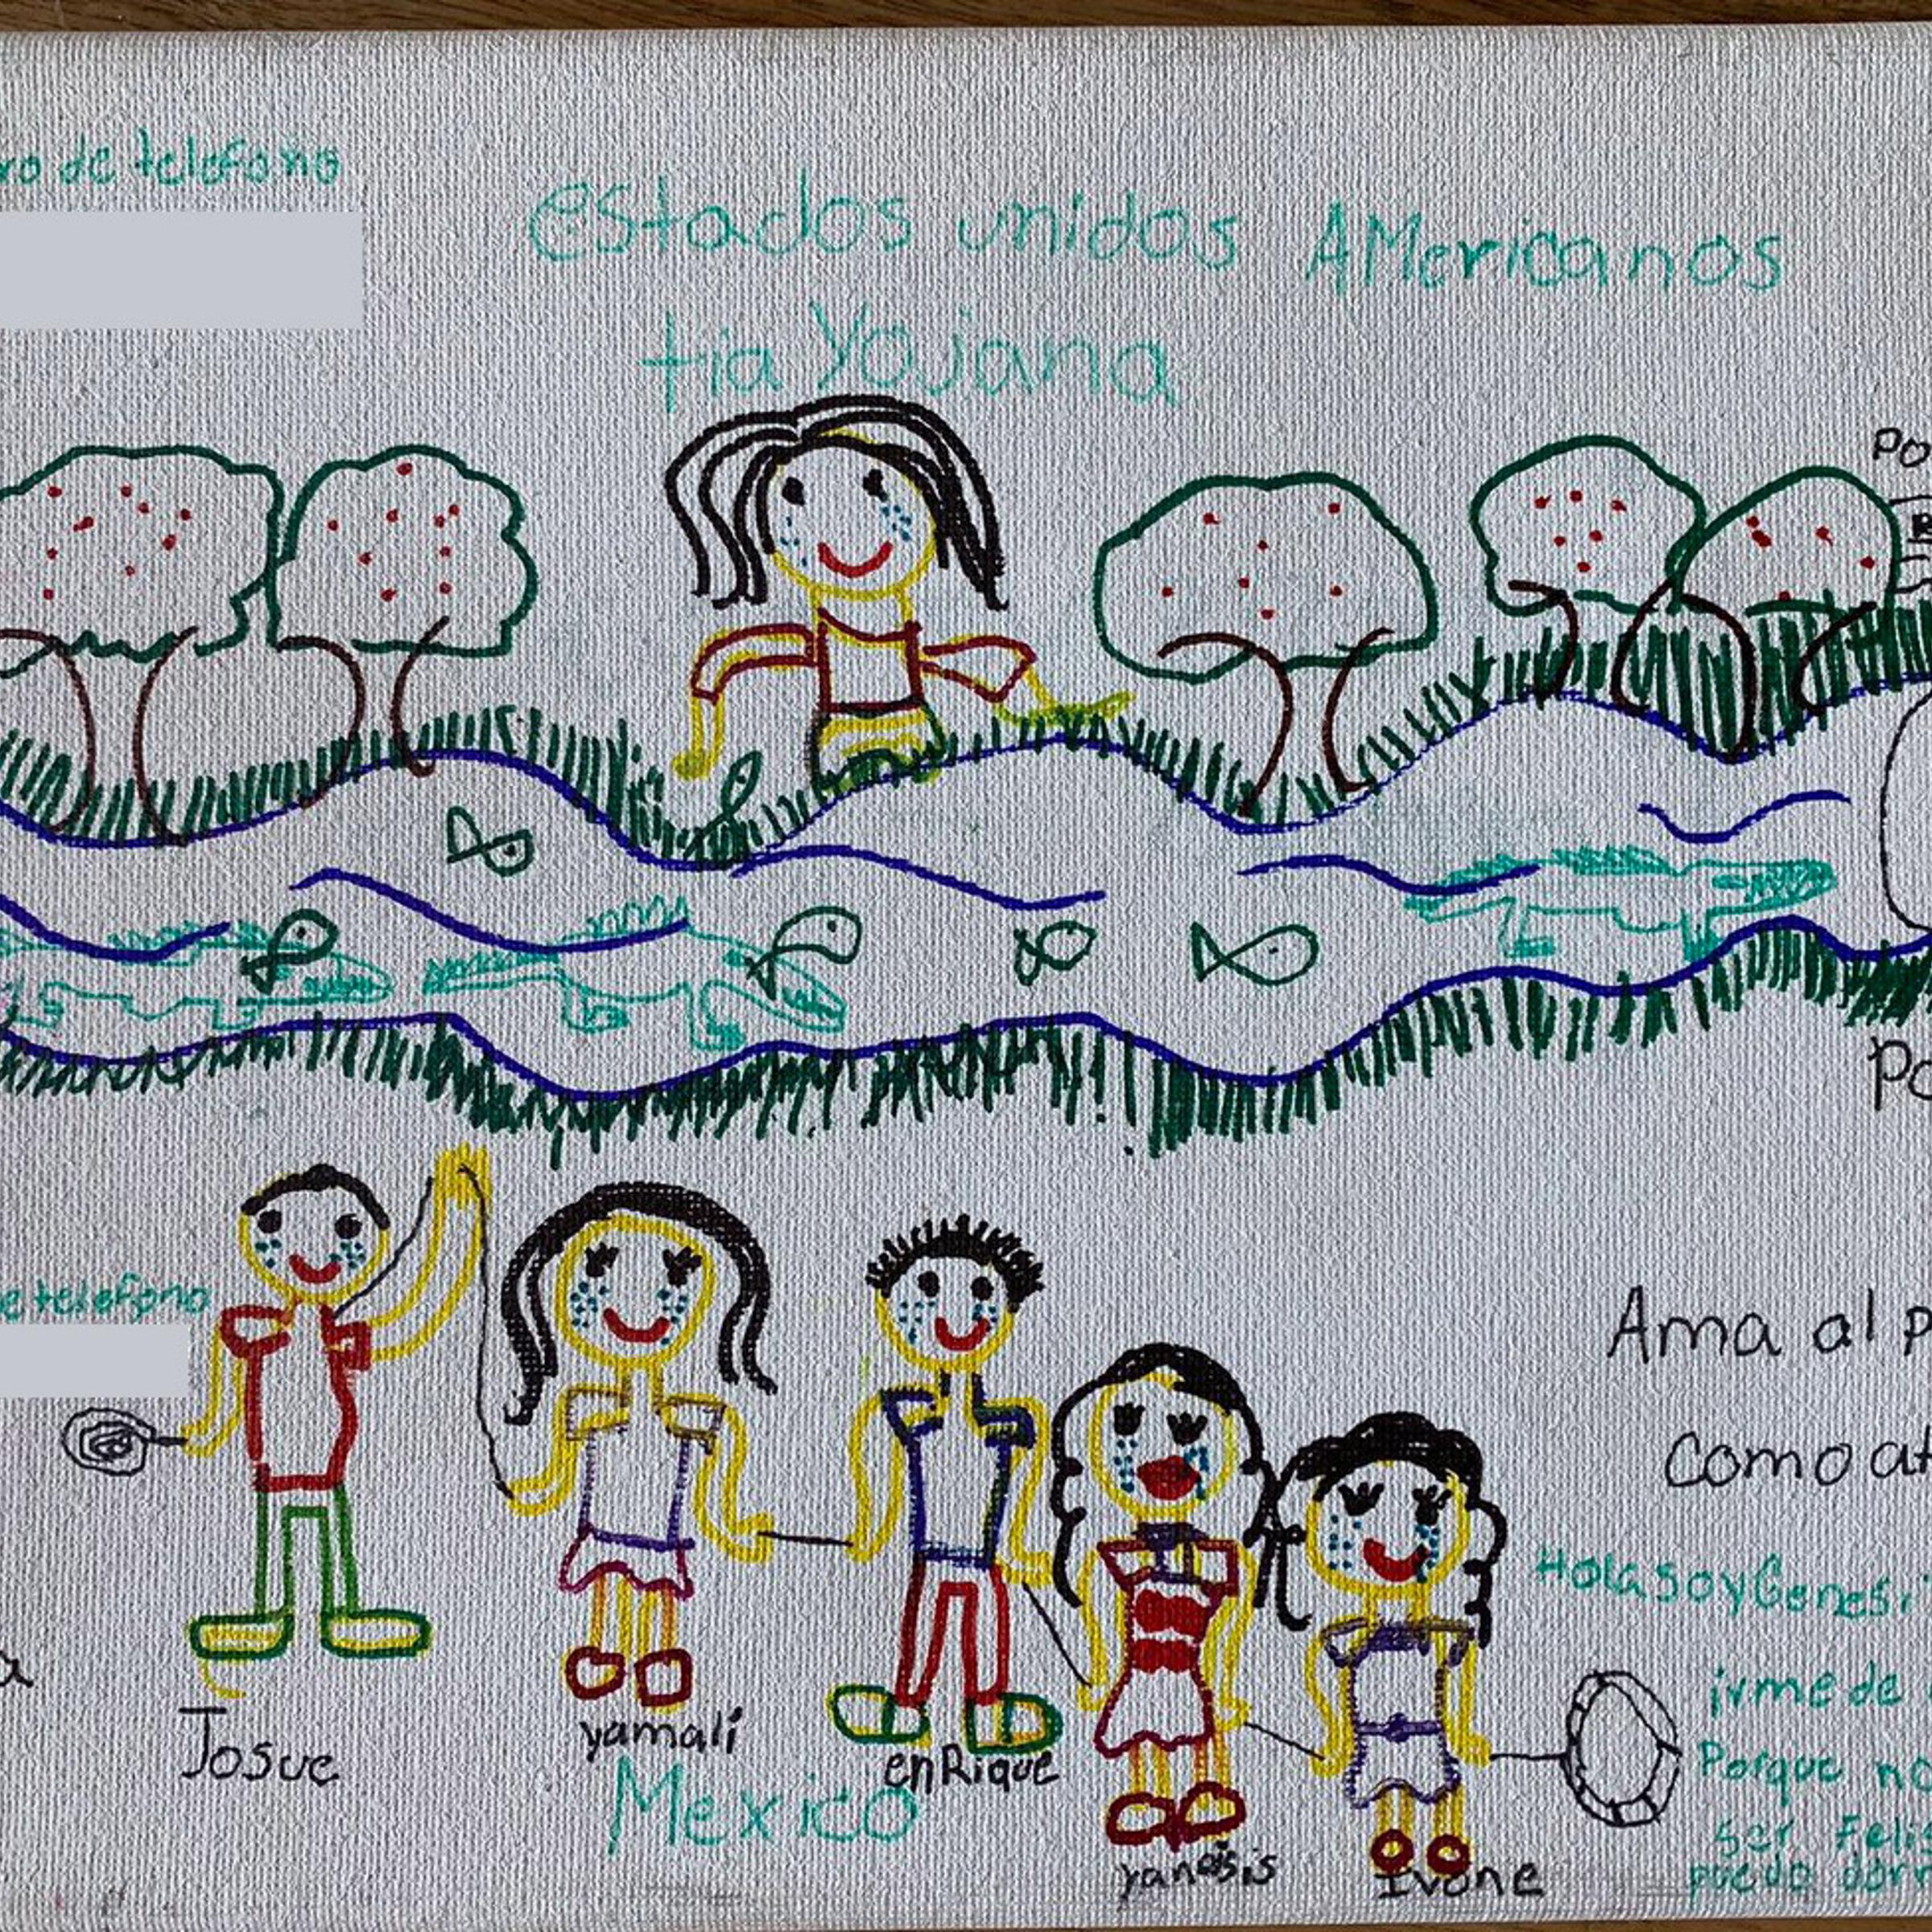 ro de telefono
estados unidos AMericanos
tia Yojana
Po
e telefono
Po
Ama al P
como at
Hola soy Genesi
irme de
Porque no
ser Feli
puedo dor
a
Josue
yamali
enRique
Mexico
yanesis
Ivone